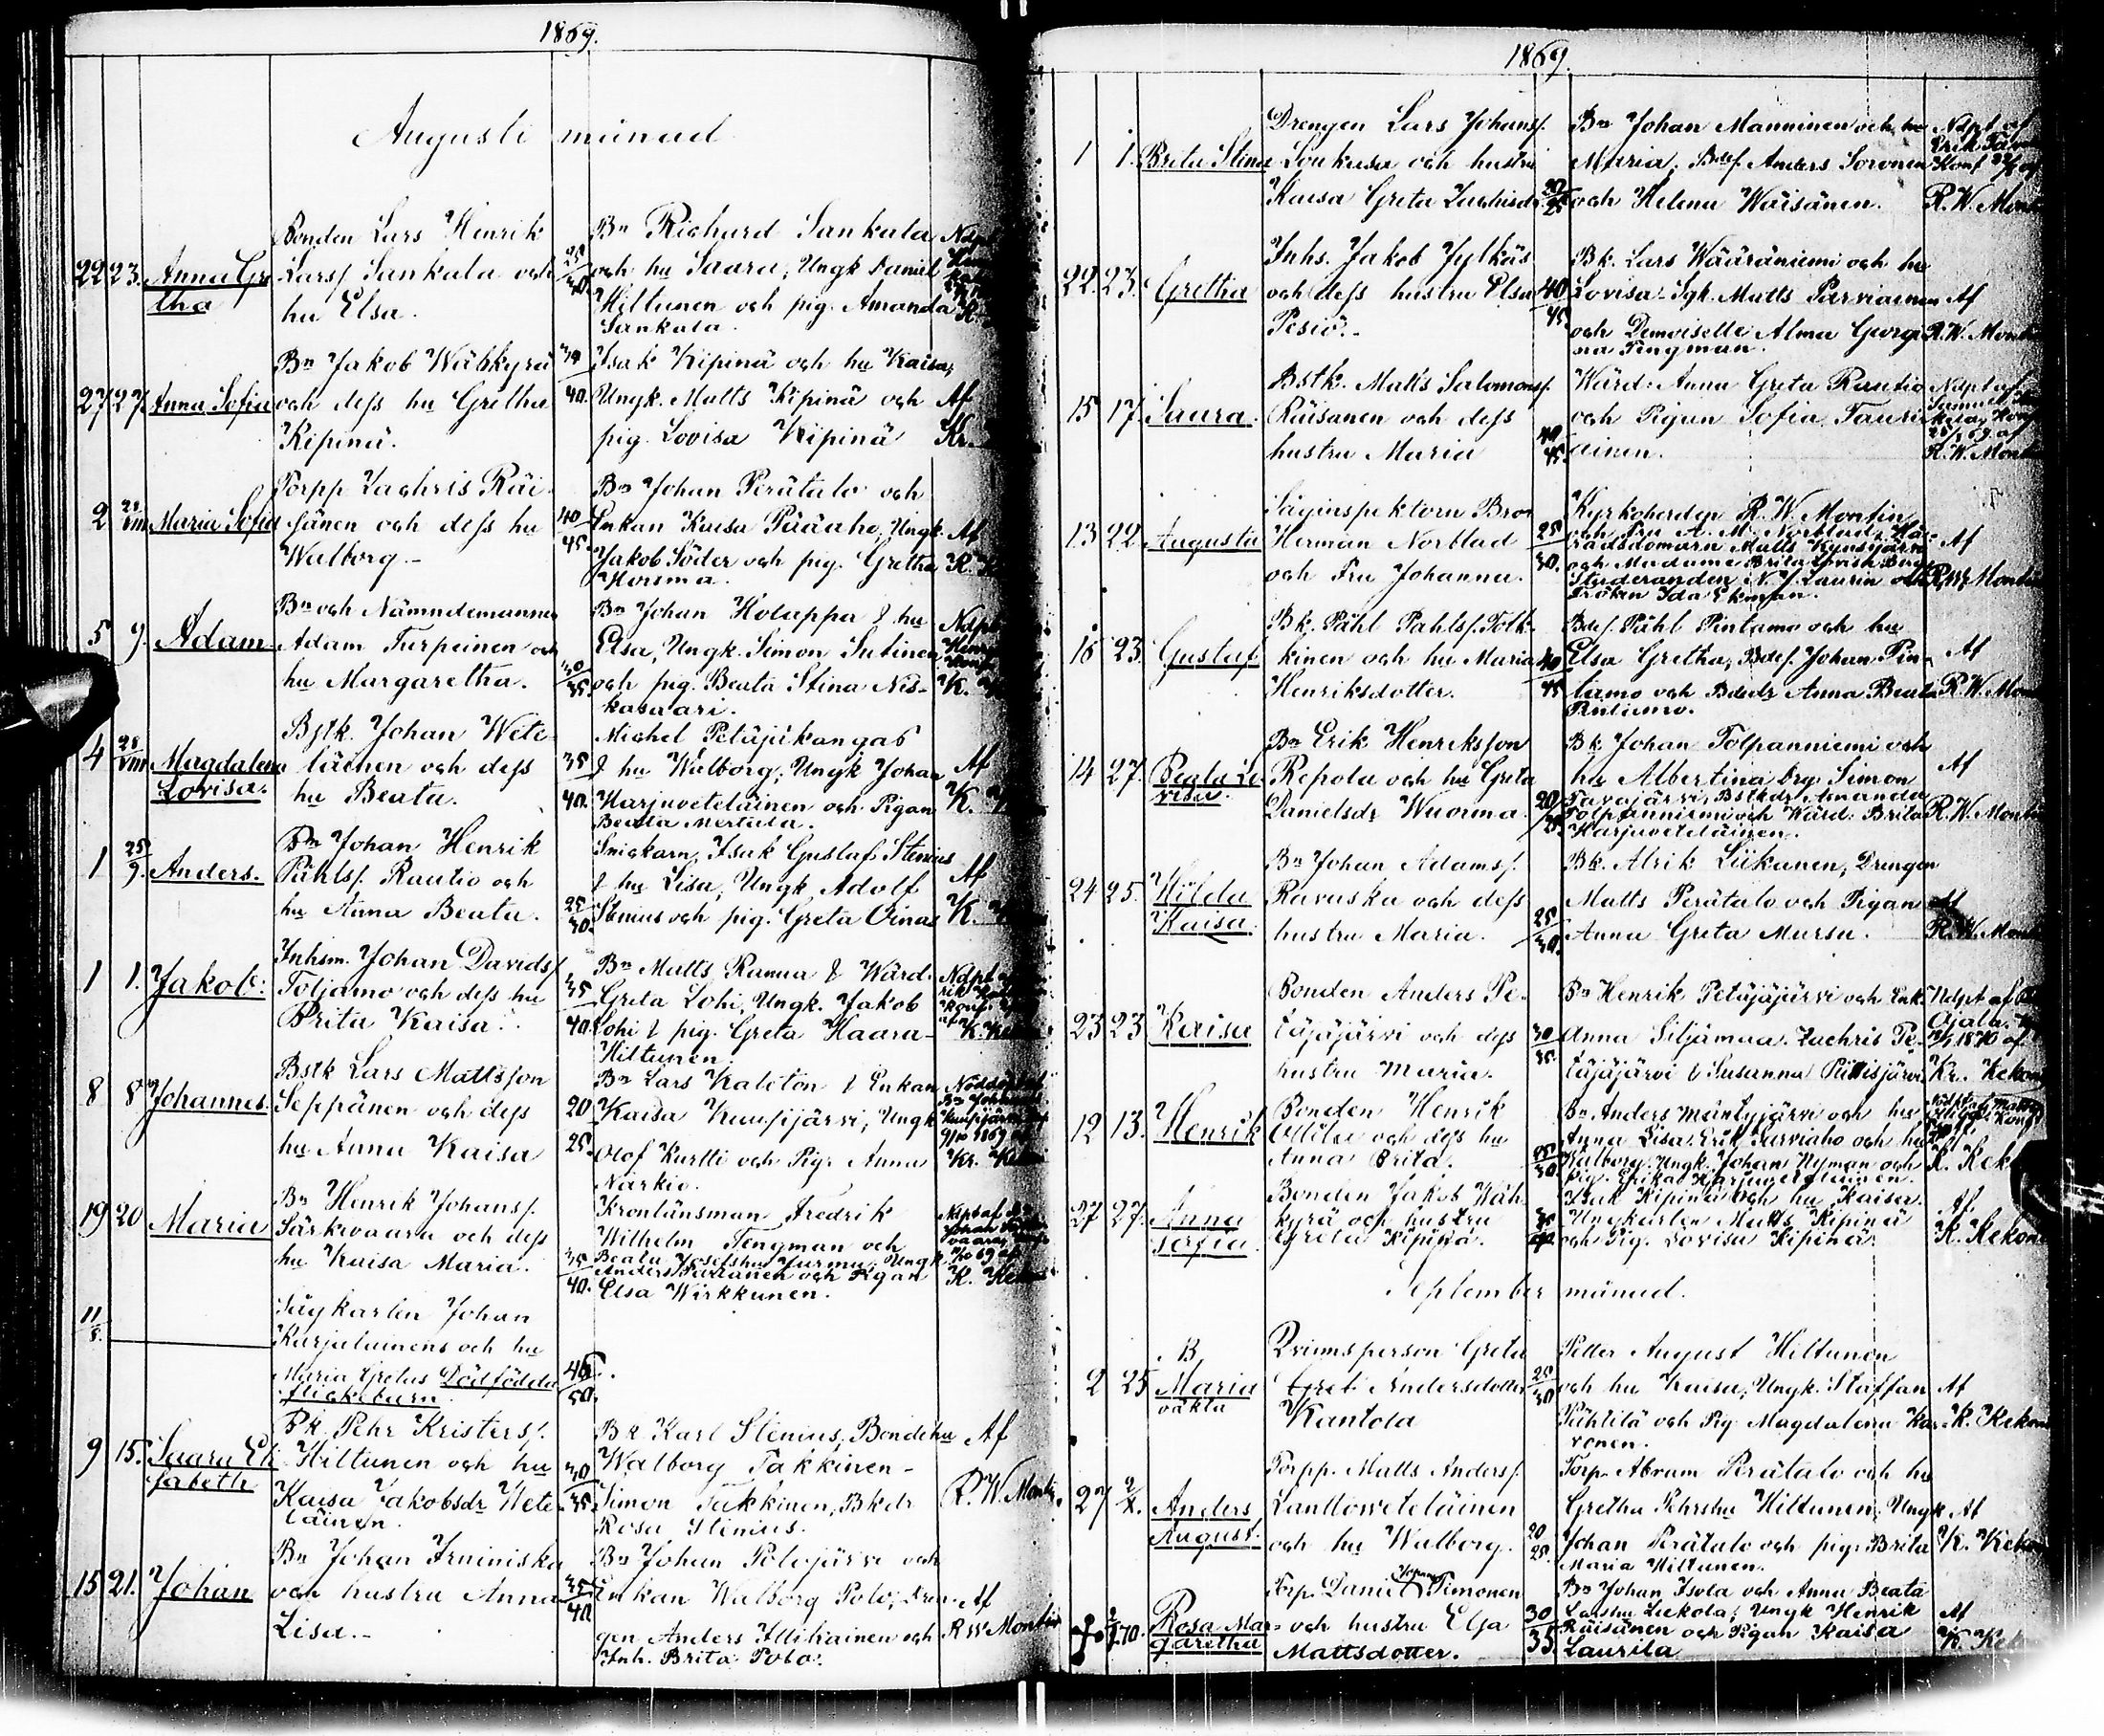 1869.
Augusti månad
Bonden Lars Henrik
22 23. Anna Gre
tha
Larss. Sankala och
hu Elsa.
25
30.
Bn Richard Sankala
och hu Saara, Ungk Daniel
Hiltunen och pig. Amanda
Sankala.
27 27 Anna Sofia
Bn Jakob Wähkyrä
och dess hu Gretha
Kipinä.
40.
Isak Kipinä och hu Kaisa,
Ungk. Matts Kipinä och
pig. Lovisa Kipinä
Af
2 28/VIII Maria Sofia
Torpp Zachris Räi-
sänen och dess hu
Walborg.-
40
45.
Bn Johan Perätalo och
Enkan Kaisa Pääaho, Ungk.
Jakob Söder och pig. Gretha
Horsma.
Af
5 9. Adam
Bn och Nämndemannen
Adam Turpeinen och
hu Margaretha.
30
35.
Bn Johan Holappa & hu
Elsa, Ungk. Simon Sutinen
och pig. Beata Stina Nis-
kasaari.
4 28/VIII Magdalena
Lovisa.
Bstk. Johan Wete-
läinen och dess
hu Beata.
35
40.
Michel Petäjäkangas
& hu Walborg, Ungk Johan
Harjuveteläinen och Pigan
Beata Mertala.
Af
1 25/9. Anders.
Bn Johan Henrik
Påhlss. Rautio och
hu Anna Beata.
25
30.
Snickarn, Isak Gustaf Stenius
& hu Lisa, Ungk. Adolf
Stenius och pig. Greta Oinas
Af
1 1. Jakob.
Inhsm. Johan Davids/
Toljamo och dess hu
Brita Kaisa.
35
40.
Bn Matts Ranua & Wärd.
Greta Lohi, Ungk. Jakob
Lohi & pig. Greta Haara-
Hiltunen.
8 8 Johannes.
Bstk Lars Mattsson
Seppänen och dess
hu Anna Kaisa
20
25.
Bn Lars Kaleton & Enkan
Kaisa Kuusijärvi, Ungk
Olof Kurtti och Pig. Anna
Närkiö.
19 20 Maria
Bn Henrik Johanss.
Särkivaara och dess
hu Kaisa Maria.
35
40.
Kronlänsman Fredrik
Wilhelm Tengman och
Beata Josefshu Jurmu, Ungk.
Anders Parranen och Pigan
Elsa Wirkkunen.
11
8.
Sågkarlen Johan
Karjalainens och hu
Maria Gretas Dödfödda
flickebarn.
45
50.
9 15. Saara Eli-
sabeth
Bk. Pehr Kristers/.
Hiltunen och hu
Kaisa Jakobsdr Wete-
läinen.
30
35
Bk Karl Stenius, Bondehu
Walborg Takkinen-
Simon Takkinen, Bkdr
Rosa Stenius.
Af
R. W. Montin.
15 21. Johan
Bn Johan Irniniska
och hustru Anna
Lisa.-
35
40
Bn Johan Polojärvi och
Enkan Walborg Polo, dren-
gen Anders Illikainen och
Inh. Brita Polo.
Af
R W Montin
1869.
1 1. Brita Stina
Drengen Lars Johans/.
Loukusa och hustru
Kaisa Greta Zachrisdr.
20
25
Bn Johan Manninen och hu
Maria, Bdes. Anders Soronen
och Helena Wäisänen.
Ndpt af
22. 23. Gretha
Inhs. Jakob Jylkäs
och dess hustru Elsa
Pesiö.-
40
45.
Bk. Lars Wääräniemi och hu
Lovisa. Sgk. Matts Parviainen
och Demoiselle Alma Georgi-
na Tengman.
Af
R.W. Montin
15 17. Saara.
Bstk. Matts Salomons/.
Räisänen och dess
hustru Maria
40
45.
Wärd. Anna Greta Rautio
och Pigan Sofia Tauri-
ainen.
Ndpt af
13 22. Augusta
Såginspektorn Bror
Herman Norblad
och Fru Johanna.
25
30.
Kyrkoherden R. W. Montin
och Fru A. M. Norblad, Hä-
radsdomarn Matts Kynsijärvi
Studeranden N. J. Laurin och
Fröken Ida Ekman.
Af
R W Montin
16 23. Gustaf
Bk. Påhl Pahls/. Tölk-
kinen och hu Maria
Henriksdotter.
40
45
Bdes. Påhl Pintamo och hu
Elsa Gretha, Bdes. Johan Pin-
tamo och Bdedr Anna Beata
Pintamo.
Af
14 27. Beata Lo-
visa.
Bn Erik Henriksson
Repola och hu Greta
Danielsdr Wuorma.
20
25.
Bk Johan Tolpanniemi och
hu Albertina Drg. Simon
Tavajärvi, Bstkdr Amanda
Tolpanniemi och Wärd. Brita
Harjuveteläinen.
Af
R.W. Montin
24 25. Hilda
Kaisa.
Bn Johan Adamss.
Ravaska och dess
hustru Maria.
25
30.
Bk. Alrik Liikanen, Drengen
Matts Perätalo och Pigan
Anna Greta Mursu.
23 23. Kaisa
Bonden Anders Pe-
täjäjärvi och dess
hustru Maria.
30
35.
Bn Henrik Petäjäjärvi och Enk.
Anna Siljämaa. Zachris Pe-
täjäjärvi & Susanna Piittisjärvi
12 13. Henrik
Bonden Henrik
Ollila och dess hu
Anna Brita.
25
30
Bn. Anders Mäntyjärvi och hu
Anna Lisa. Erik Tarviaho och hu
Walborg. Ungk. Johan Nyman och
Pig. Erika Harjuveteläinen.
27 27. Anna
Sofia.
Bonden Jakob Wäh-
kyrä och hustru
Greta Kipinä.
Isak Kipinä och hu Kaisa.
Ungkarlen Matts Kipinä
och Pig. Lovisa Kipinä
Af
September månad.
B,
2 25 Maria
oäkta
Qvinnsperson Greta
Andersdotter
Kantola
25
30
Petter August Hiltunen
och hu Kaisa, Ungk. Staffan
Pähtilä och Pig. Magdalena Kar-
vonen.
Af
27 2/X. Anders
August.
Torpp. Matts Anders/.
Lanttoveteläinen
och hu Walborg.
20
25.
Torp. Abram Perätalo och hu
Gretha Pehrshu Hiltunen. Ungk
Johan Perätalo och pig. Brita
Maria Hiltunen.
Af
Rosa Mar-
garetha
Torp. Daniel Timonen
och hustru Elsa
Mattsdotter.
30
35.
Bn Johan Isola och Anna Beata
Ungk Henrik
Räisänen och Pigan Kaisa
Laurila
Af